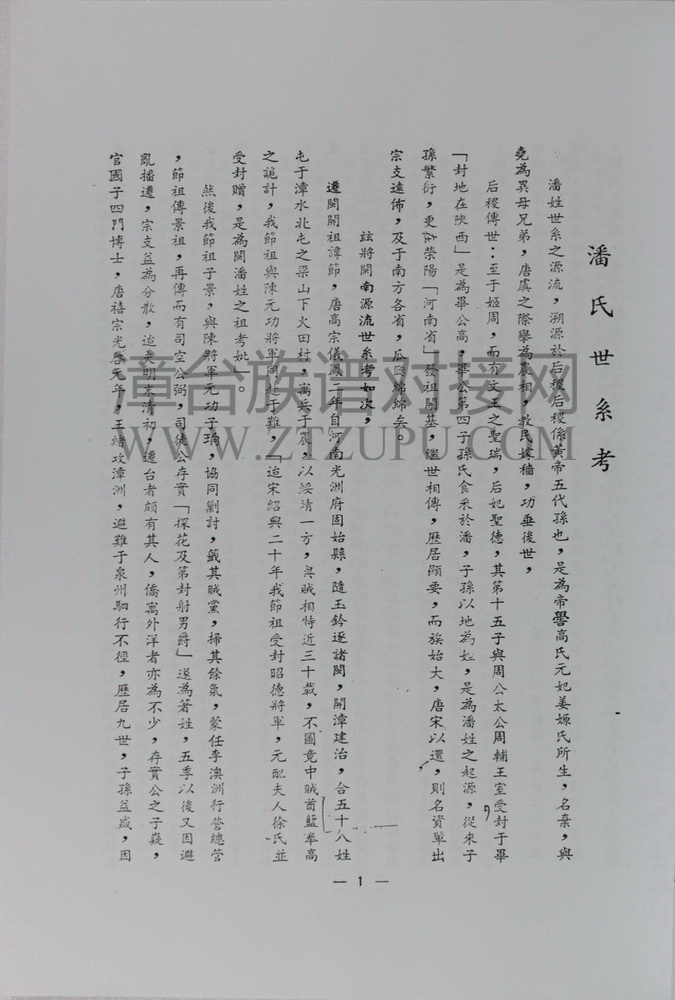 潘氏世系考
潘姓世系之源流，溯源於后稷后稷係黃帝五代孫也，是為帝嚳高氏元妃姜嫄氏所生，名棄，與
堯為異母兄弟，唐虞之際舉為農相，教民嫁穡，功垂後世，
后稷傳世：至于姬周，而有文王之聖瑞，后妃聖德，其第十五子與周公太公周輔王室受封于畢
「封地在陜西」是為畢公高，畢公第四子孫氏食釆於潘，子孫以地為姓，是為潘姓之起源，從來子
孫繁衍，更在滎陽「河南省」發祖開基，繼世相傳，歷居顯要，而族始大，唐宋以還，則名資單出
宗支遠佈，及于南方各省，瓜瓞綿綿矣。
茲將閩南源流世系考如次，
遷閩開祖諱節，唐高宗儀鳳二年自河南光洲府固始縣，隨玉鈐逐諸閩，開漳建治，合五十八姓
屯于漳水北屯之梁山下火田村，寓兵于農，以綏靖一方，與賊相恃近三十載，不圖竟中賊酋藍奉高
之詭計，我節祖與陳元功將軍同赴于難，「迨宋紹興二十年我節祖受封昭德將軍，元配夫人徐氏並
受封贈，是為閩潘姓之祖考妣」。
然後我節祖子景，與陳將軍元功子珦，協同剿討，籤其賊黨，掃其餘氛，蒙任李澳洲行營總管
，節祖傳景祖，再傳而有司空公弼，司徒公存實「探花及第封射男爵」遂為著姓，五季以後又因避
亂播遷，宗支益為分散，迨夫明末清初，遷台者頗有其人，僑寓外洋者亦為不少，存實公之子嶷，
官國子四門博士，唐禧宗光啓元年，王緒攻漳洲，避難于泉州駟行不徑，歷居九世，子孫益歲，因
— 1 —
章台族谱对接网
WWW.ZTZUPU.COM